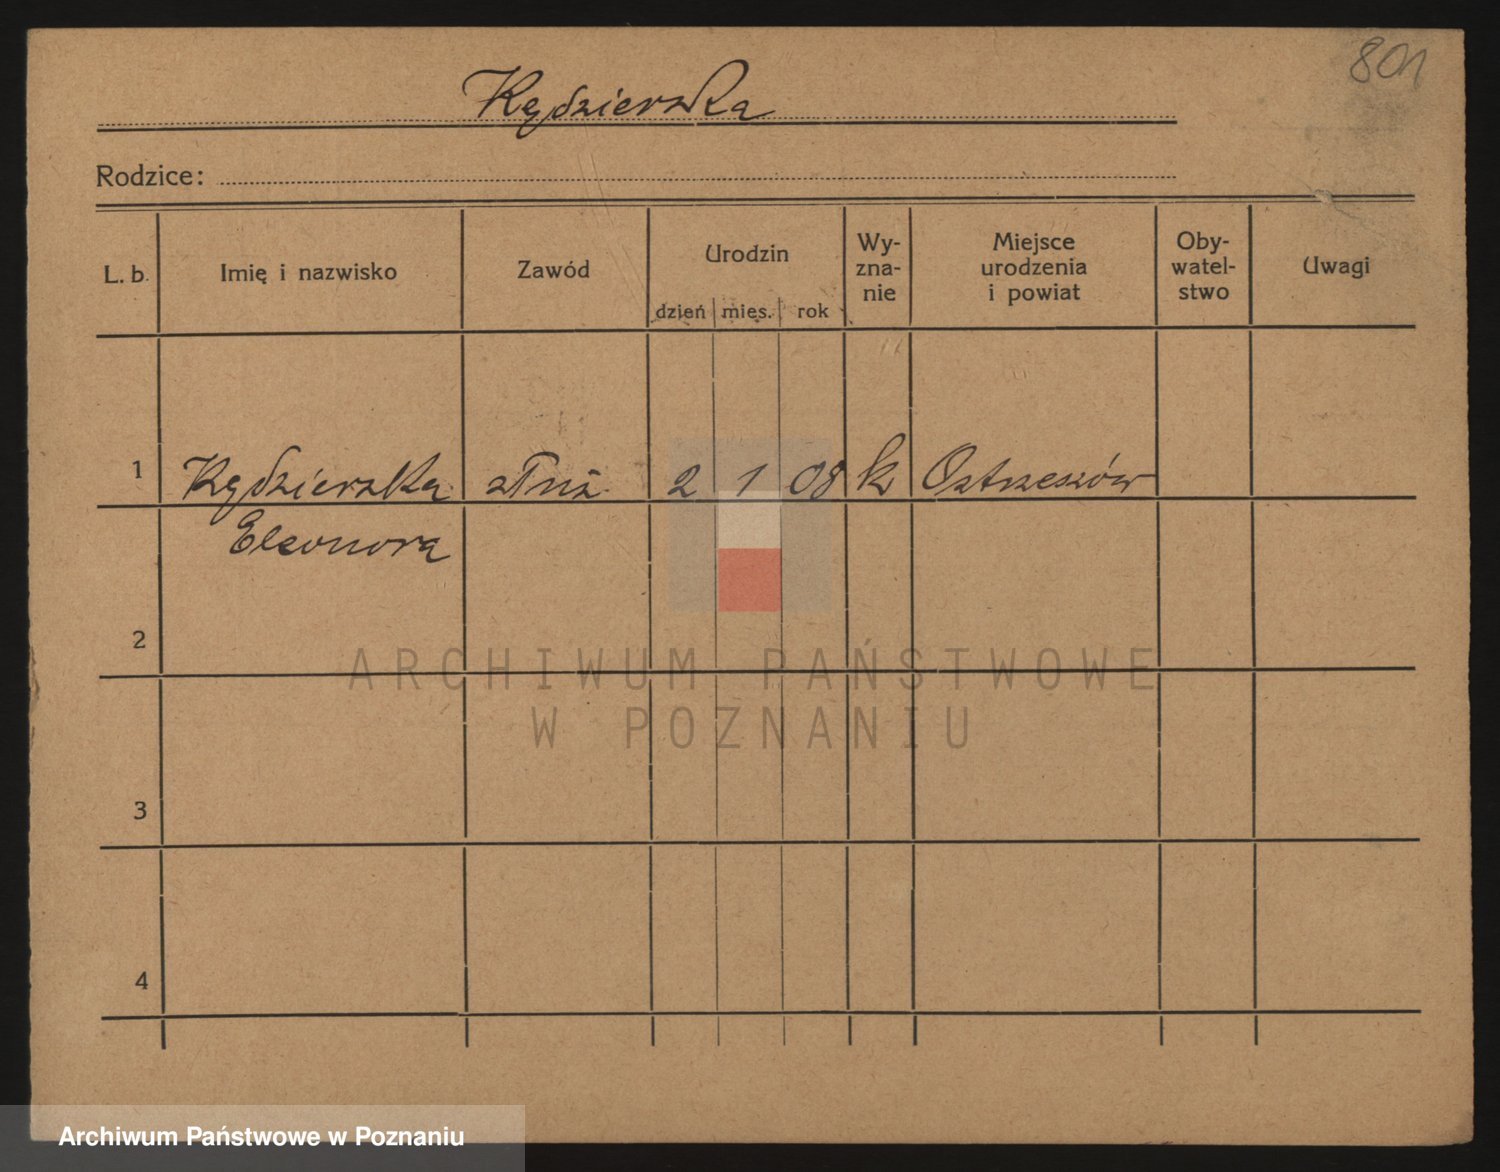 801
Kędzierska
Rodzice:
L. b. Imię i nazwisko Zawód Urodzin dzień mies. rok Wy-zna-nie Miejsce urodzenia i powiat Oby-watel-stwo Uwagi
1 Kędzierska służ. 2 1 08 k Ostrzeszów
Eleonora
2
ARCHIWUM PAŃSTWOWE
W POZNANIU
3
4
Archiwum Państwowe w Poznaniu